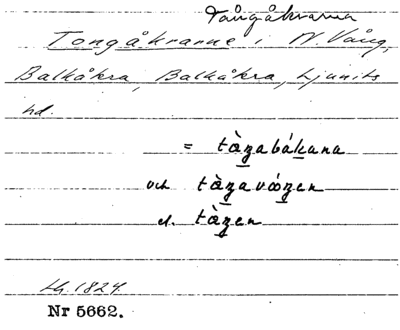 Tångåkrarna
Tongåkrarne i N. Vång,
Balkåkra, Balkåkra, Ljunits
hd.
= tàʒabákana
och tàʒavóʒen
el. tàʒen
LH. 1824.
Nr 5662.